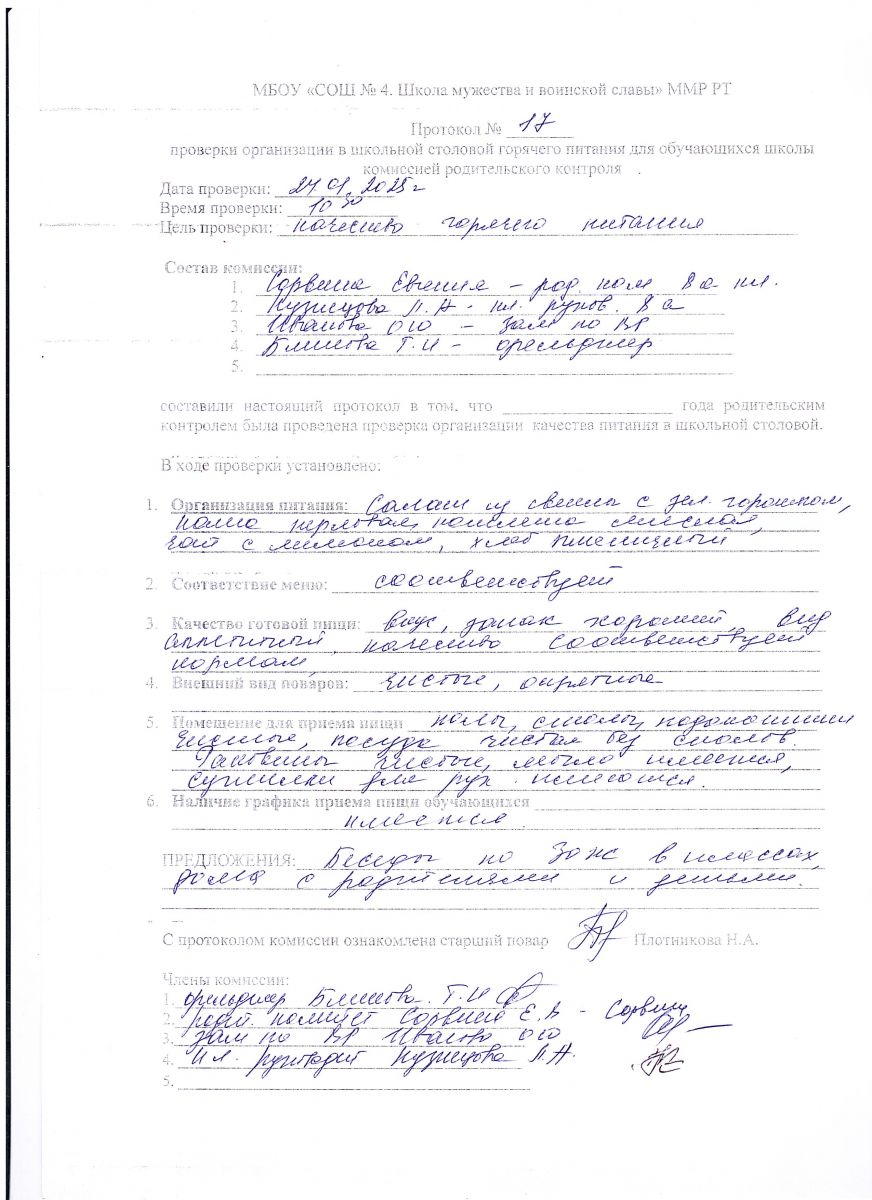 МБОУ «СОШ № 4. Школа мужества и воинской славы» ММР РТ
Протокол № 17
проверки организации в школьной столовой горячего питания для обучающихся школы
комиссией родительского контроля
Дата проверки: 24.01.2025г
Время проверки: 10 30
Цель проверки: качество горячего питания
Состав комиссии:
1. Сорвина Евгения – род. ком 8а кл.
2. Кузнецова Л.А - кл. руков. 8а
3. Иванова О Ю – зам по ВР
4. Блинова Т.И – фельдшер
5.
составили настоящий протокол в том, что года родительским
контролем была проведена проверка организации качества питания в школьной столовой.
В ходе проверки установлено:
1. Организация питания: Салат из свеклы с зел. горошком,
каша перловая, котлета мясная,
чай с лимоном, хлеб пшеничный
2. Соответствие меню: соответствует
3. Качество готовой пищи: вкус, запах хороший, вид
отличный, качество соответствует
нормам,
4. Внешний вид поваров: чистые, опрятные
5. Помещение для приема пищи полы, столы, подоконники
чистые, посуда чистая без сколов.
Раковины чистые, мыло имеется,
сушилки для рук имеются.
6. Наличие графика приема пищи обучающихся
имеется.
ПРЕДЛОЖЕНИЯ: Беседы по ЗОЖ в классах,
дома с родителями и детьми.
С протоколом комиссии ознакомлена старший повар Плотникова Н.А.
Члены комиссии:
1. фельдшер Блинова Т.И
2. родит. комитет Сорвина Е.В - Сорвина
3. зам по ВР Иванова ОЮ
4. Кл. руководит Кузнецова Л.А.
5.